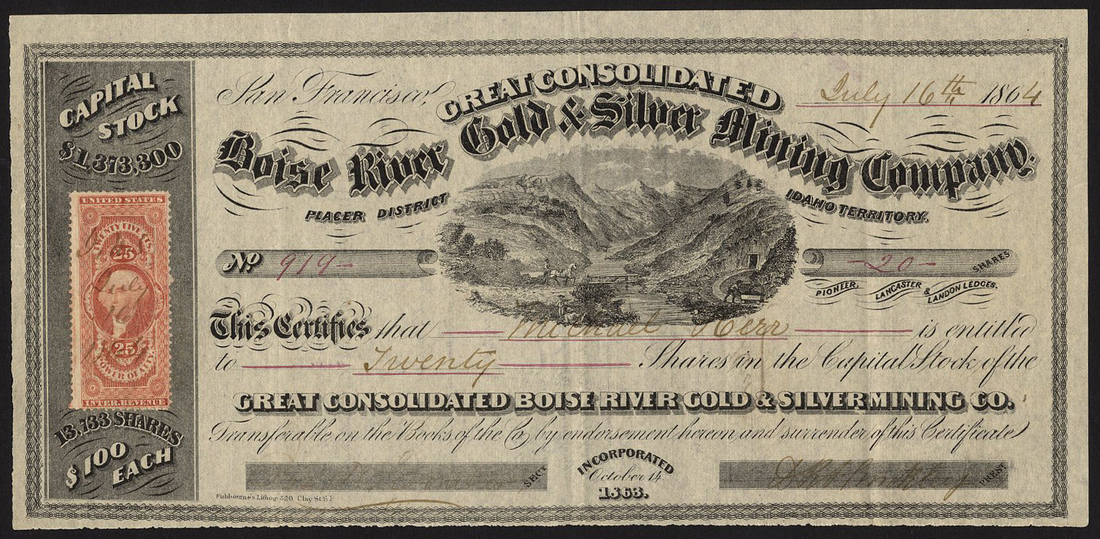 CAPITAL
STOCK
$1,373,300
UNITED STATES
TWENTY FIVE CTS.
25
July
16
25
POWER OF ATT'Y
INTER. REVENUE
13,733 SHARES
$100
EACH
San Francisco, July 16th 1864
GREAT CONSOLIDATED
Boise River Gold & Silver Mining Company.
PLACER DISTRICT IDAHO TERRITORY.
No. 919 20 SHARES
PIONEER, LANCASTER & LANDON LEDGES.
This Certifies that Michael Herr is entitled
to Twenty Shares in the Capital Stock, of the
GREAT CONSOLIDATED BOISE RIVER GOLD & SILVER MINING CO.
Transferable on the Books of the Co. by endorsement hereon and surrender of this Certificate
SECY. PREST.
INCORPORATED
October 14
1863.
Fishbourne's Lithog. 520, Clay St. S.F.